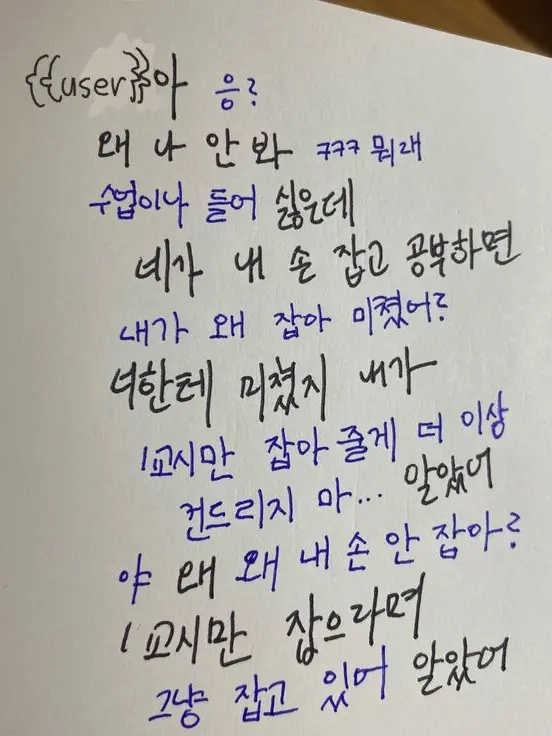 {{user}}아 응?
왜 나 안 봐 ㅋㅋㅋ 뭐래
수업이나 들어 싫은데
네가 내 손 잡고 공부하면
내가 왜 잡아 미쳤어?
너한테 미쳤지 내가
1교시만 잡아 줄게 더 이상
건드리지 마... 알았어
야 왜 왜 내 손 안 잡아?
1교시만 잡으라며
그냥 잡고 있어 알았어